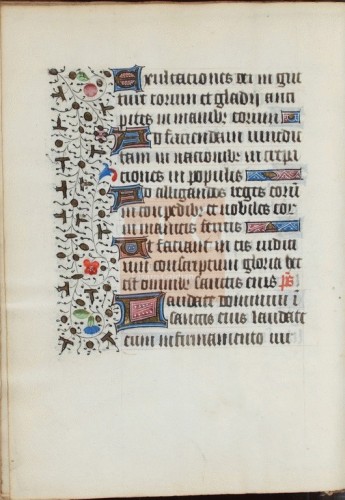 Exultaciones dei in gut
ture eorum et gladij anci
pites in manibz eorum
Ad faciendam vindic
tam in nationibz increpa
tiones in populis
Ad alligandos reges eorū
in conpedibz et nobiles eor
in manicis ferreis
Ut faciant in eis iudici
um conscriptum gloria hec
est omnibz sanctis eius ps
Laudate dominum ī
sanctis eius laudate
eum in firmamento vir